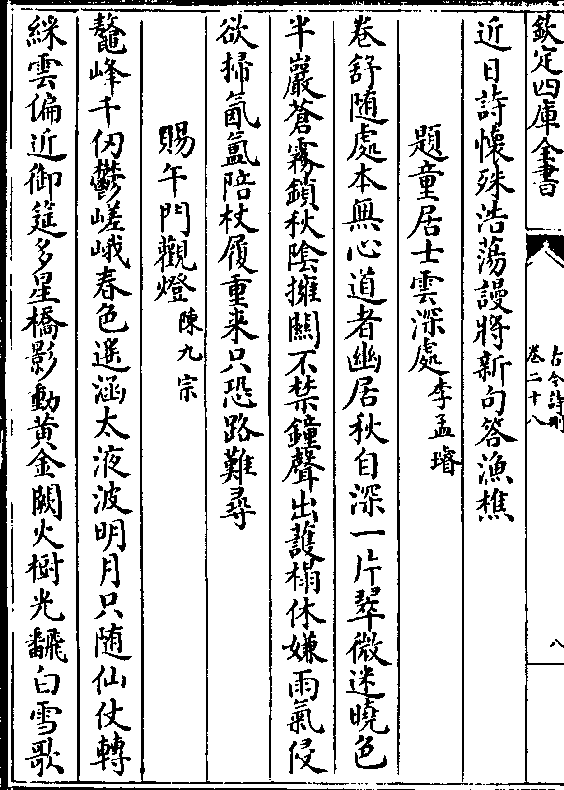 欽定四庫全書
古今詩刪
卷二十八
八
近日詩懷殊浩蕩謾將新句答漁樵
題童居士雲深處李孟璿
卷舒随處本無心道者幽居秋自深一片翠微迷曉色
半巖蒼霧鎖秋陰擁關不禁鐘聲出護榻休嫌雨氣侵
欲掃氤氳陪杖履重来只恐路難尋
賜午門觀燈陳九宗
鼇峰千仞鬱嵯峨春色遥涵太液波明月只随仙仗轉
綵雲偏近御筵多星橋影動黄金闕火樹光飜白雪歌